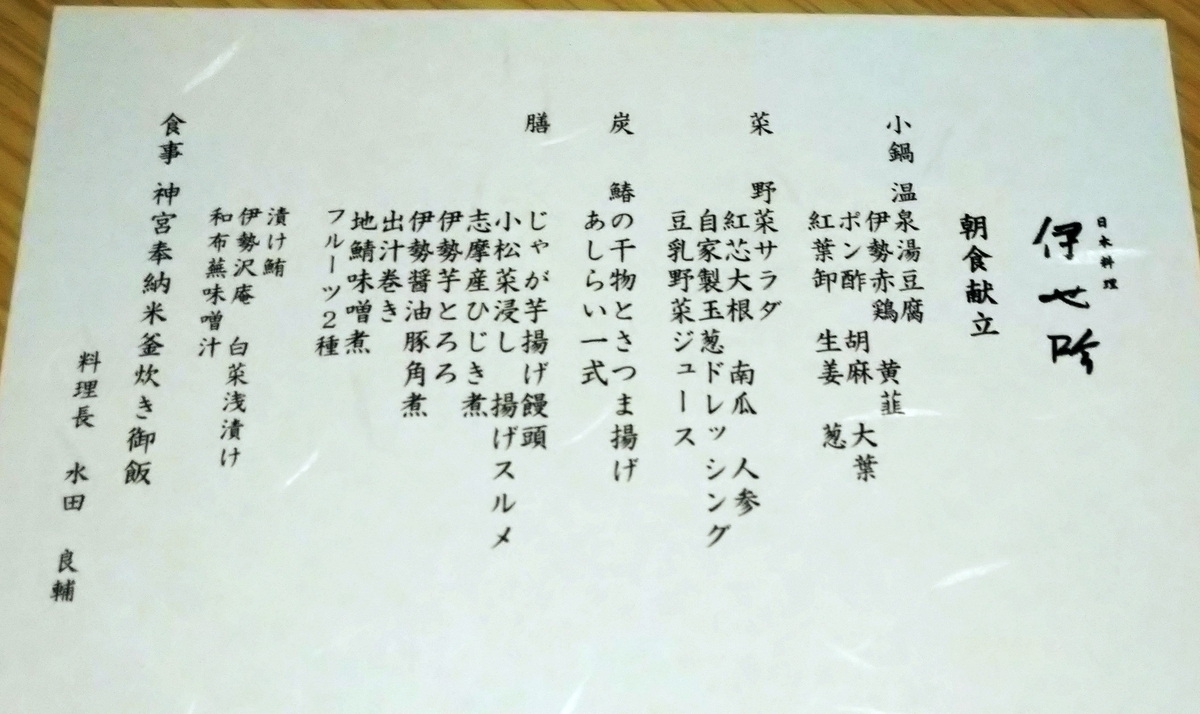 日本料理
伊せ吟
朝食献立
小鍋 温泉湯豆腐
伊勢赤鶏 黄韮
ポン酢 胡麻 大葉
紅葉卸 生姜 葱
菜 野菜サラダ
紅芯大根 南瓜 人参
自家製玉葱ドレッシング
豆乳野菜ジュース
炭 鰆の干物とさつま揚げ
あしらい一式
膳 じゃが芋揚げ饅頭
小松菜浸し 揚げスルメ
志摩産ひじき煮
伊勢芋とろろ
伊勢醤油豚角煮
出汁巻き
地鯖味噌煮
フルーツ2種
漬け鮪
伊勢沢庵 白菜浅漬け
和布蕪味噌汁
食事 神宮奉納米釜炊き御飯
料理長 水田 良輔